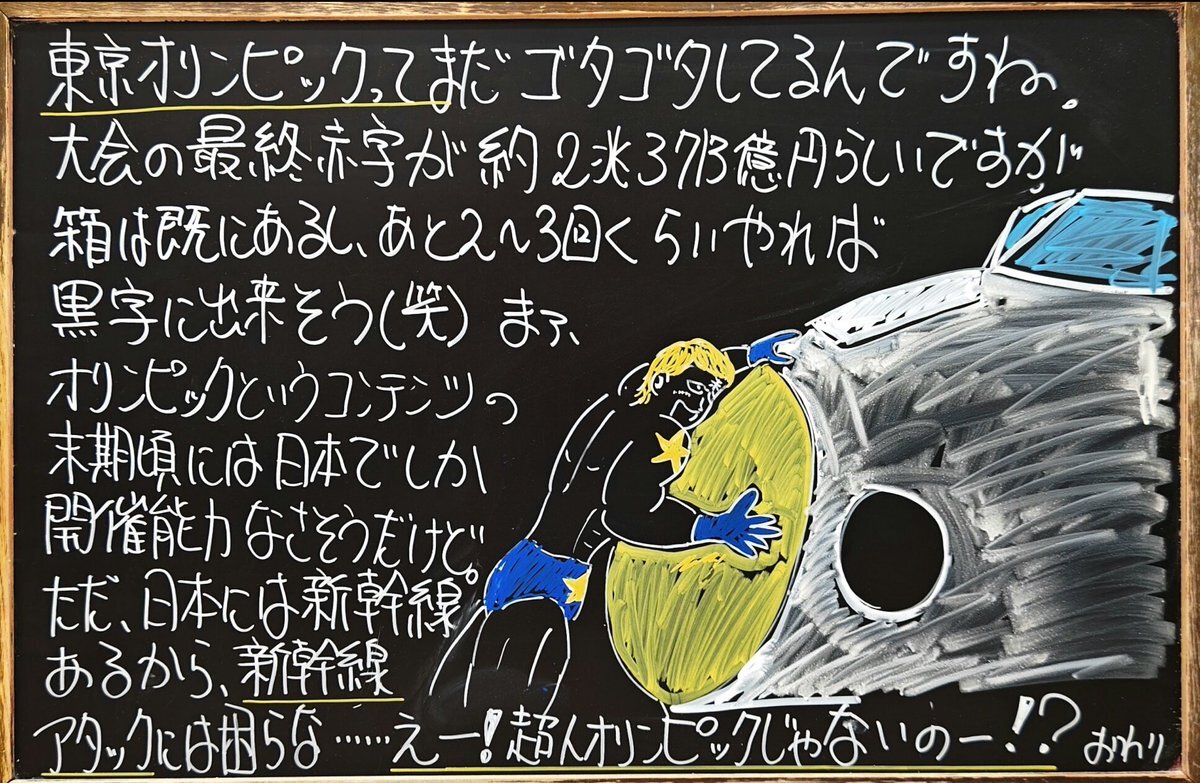 東京オリンピックってまだゴタゴタしてるんですね。
大会の最終赤字が約2兆3713億円らしいですが
箱は既にあるし、あと2〜3回くらいやれば
黒字に出来そう(笑)まァ、
オリンピックというコンテンツの
末期頃には日本でしか
開催能力なさそうだけど。
ただ、日本には新幹線
あるから、新幹線
アタックには困らな……えー!超人オリンピックじゃないのー!?おわり